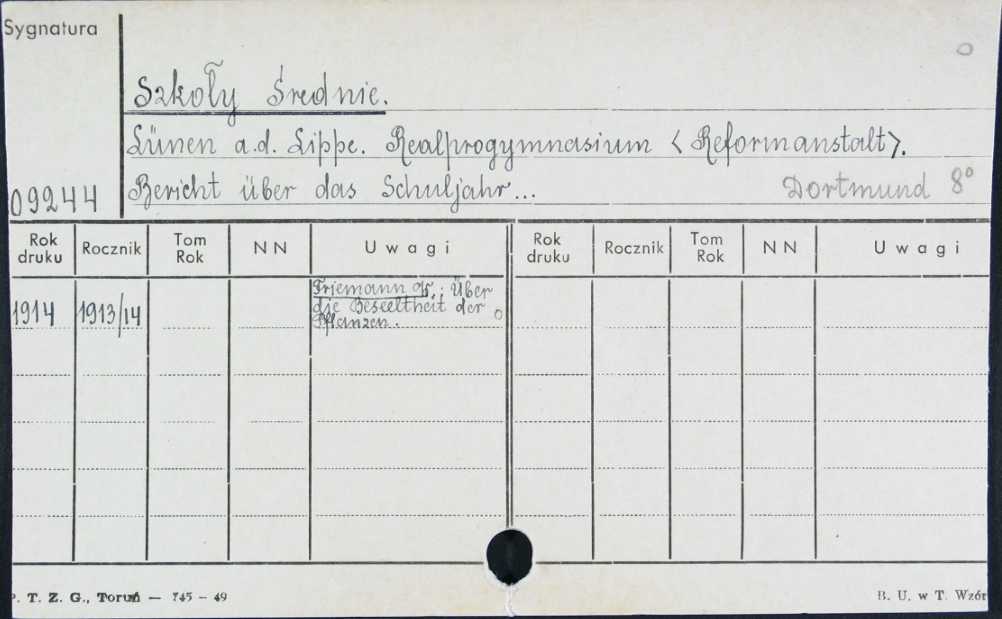 Sygnatura
Szkoły Średnie.
Lünen a.d. Lippe. Realprogymnasium <Reformanstalt>.
09244 Bericht über das Schuljahr... Dortmund 8°
Rok druku Rocznik Tom Rok NN Uwagi Rok druku Rocznik Tom Rok NN Uwagi
1914 1913/14 Friemann : Über
die Beseeltheit der
Pflanzen.
P. T. Z. G., Toruń — 745 – 49 B. U. w T. Wzór